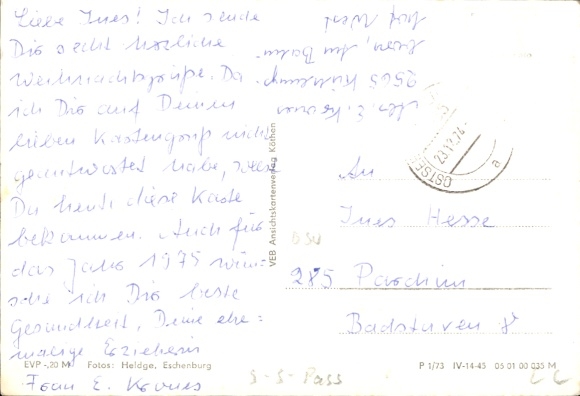 Liebe Ines! Ich sende
Dir recht herzliche
Weihnachtsgrüße. Da
ich Dir auf Deinen
lieben Kartengruß nicht
geantwortet habe, sollst
Du heute diese Karte
bekommen. Auch für
das Jahr 1975 wün-
sche ich Dir beste
Gesundheit, Deine ehe=
malige Erzieherin
Frau E.
Abs. E.
2565
VEB Ansichtskartenverlag Köthen
OSTSEE
23.12.74
a
An
Ines Hesse
285 Parchim
Badstüven 8
EVP -,20 M Fotos: Heldge, Eschenburg
P 1/73 IV-14-45 05 01 00 035 M
S-S-Pass